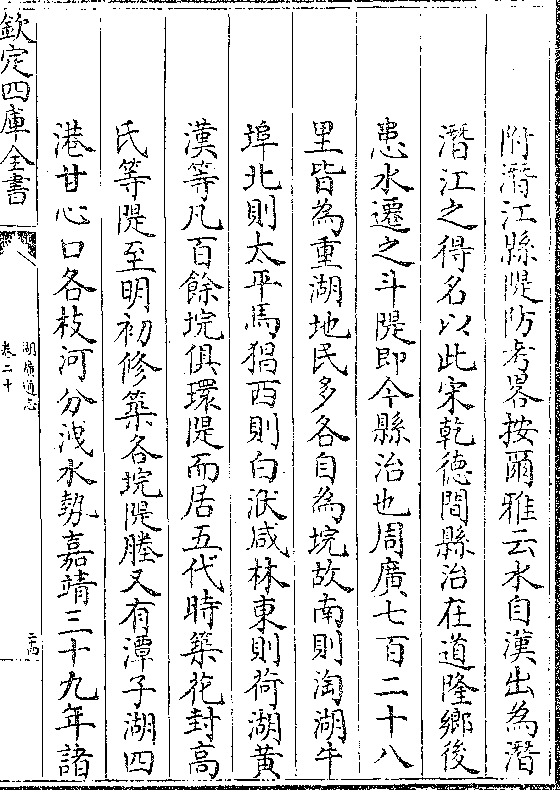 附潛江縣隄防考畧按爾雅云水自漢出為潛
潛江之得名以此宋乾德間縣治在道隆鄉後
患水遷之斗隄即今縣治也周廣七百二十八
里皆為重湖地民多各自為垸故南則淘湖牛
埠北則太平馬猖西則白洑咸林東則荷湖黄
漢等凡百餘垸俱環隄而居五代時築花封高
氏等隄至明初修築各垸隄塍又有潭子湖四
港甘心口各枝河分洩水勢嘉靖三十九年諸
欽定四庫全書
湖廣通志
卷二十